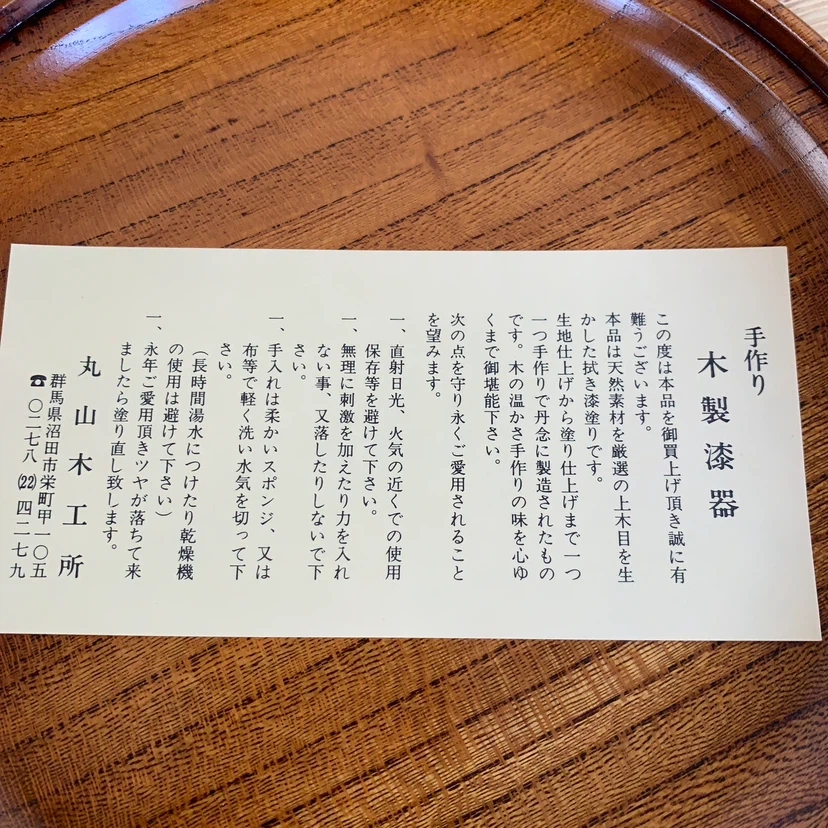 手作り
木製漆器
この度は本品を御買上げ頂き誠に有
難うございます。
本品は天然素材を厳選の上木目を生
かした拭き漆塗りです。
生地仕上げから塗り仕上げまで一つ
一つ手作りで丹念に製造されたもの
です。木の温かさ手作りの味を心ゆ
くまで御堪能下さい。
次の点を守り永くご愛用されること
を望みます。
一、直射日光、火気の近くでの使用
保存等を避けて下さい。
一、無理に刺激を加えたり力を入れ
ない事、又落したりしないで下
さい。
一、手入れは柔かいスポンジ、又は
布等で軽く洗い水気を切って下
さい。
（長時間湯水につけたり乾燥機
の使用は避けて下さい）
一、永年ご愛用頂きツヤが落ちて来
ましたら塗り直し致します。
丸山木工所
群馬県沼田市栄町甲一〇五
☎〇二七八(22)四二七九